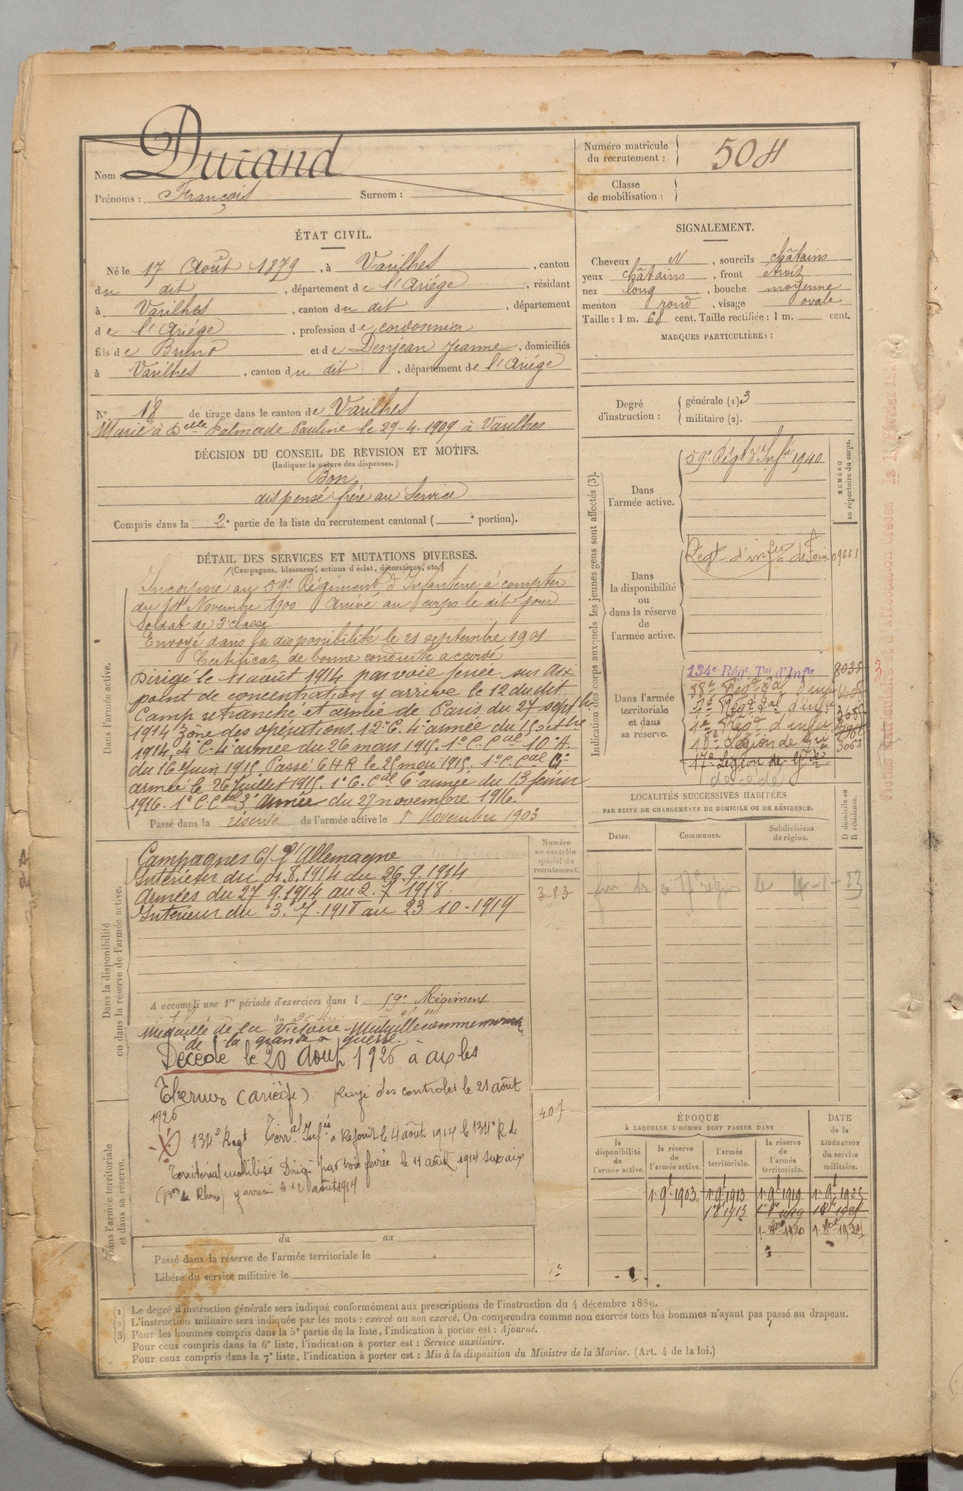 Nom : Durand
Prénoms : François Surnom :
Numéro matricule du recrutement : 504
Classe de mobilisation :
ÉTAT CIVIL.
Né le 17 Août 1879, à Varilhes, canton
du dit, département de l'Ariége, résidant
à Varilhes, canton du dit, département
de l'Ariége, profession de cordonnier
fils de Bruno et de Denjean Jeanne, domiciliés
à Varilhes, canton du dit, département de l'Ariége
N° 18 de tirage dans le canton de Varilhes
Marié à Delle Palmade Pauline le 29-4-1909 à Varilhes
DÉCISION DU CONSEIL DE REVISION ET MOTIFS.
(Indiquer la nature des dispenses.)
Bon
dispensé frère au service
Compris dans la 2e partie de la liste du recrutement cantonal ( e portion).
SIGNALEMENT.
Cheveux N, sourcils châtains
yeux châtains, front étroit
nez long, bouche moyenne
menton rond, visage ovale
Taille : 1 m. 68 cent. Taille rectifiée : 1 m. cent.
MARQUES PARTICULIÈRES :
Degré d'instruction : générale (1) 3
militaire (2).
DÉTAIL DES SERVICES ET MUTATIONS DIVERSES.
(Campagnes, blessures, actions d'éclat, décorations, etc.)
Dans l'armée active.
Incorporé au 59e Régiment d'Infanterie à compter
du 14 Novembre 1900 Arrivé au corps le dit jour
Soldat de 2e classe
Envoyé dans la disponibilité le 21 septembre 1901
Certificat de bonne conduite accordé
Dirigé le 11 août 1914 par voie ferrée sur Aix
point de concentration y arrive le 12 du dit
Camp retranché et armée de Paris du 27 septbre
1914 zône des opérations. 12e C. 4e armée du 15 octbre
1914. 4e C. 4e armée du 26 mars 1915. 1er C. Cal 10e A.
du 16 Juin 1915. Passé 6 H R le 25 mai 1915. 1er C. Cal
armée le 26 Juillet 1915. 1er C. Cal 6e armée du 13 février
1916. 1er C. Cal 3e armée du 27 novembre 1916.
Passé dans la réserve de l'armée active le 1er Novembre 1903
Dans la disponibilité ou dans la réserve de l'armée active.
Campagnes C/ l'Allemagne
Intérieur du 4.8.1914 du 26.9.1914
Armées du 27.9.1914 au 2.7.1918.
Intérieur du 3.7.1918 au 23-10-1919
A accompli une 1re période d'exercices dans l 59e Régiment
Médaille de la Victoire - Médaille commémorative
de la grande guerre.
Décédé le 20 Août 1926 à ax les
Thermes (ariège) Rayé des controles le 21 août
1926
134e Regt Terral Infie a Rejoint le 4 août 1914 le 134e R de
Territorial mobilisé Dirigé par voie ferrée le 11 août 1914 sur aix
(Bes du Rhône) y arrive le 12 août 1914
Dans l'armée territoriale et dans sa réserve.
du au
Passé dans la réserve de l'armée territoriale le
Libéré du service militaire le
Numéro au contrôle spécial du recrutement.
383
407
Indication des corps auxquels les jeunes gens sont affectés (3).
NUMÉRO au répertoire du corps.
Dans l'armée active.
59e Régt d'Infie 1940
Dans la disponibilité ou dans la réserve de l'armée active.
Régt d'infie de Foix 09661
Dans l'armée territoriale et dans sa réserve.
134e Régt Tal d'Infie 8035
18e Légion de
17e Légion de
décédé
LOCALITÉS SUCCESSIVES HABITÉES
PAR SUITE DE CHANGEMENTS DE DOMICILE OU DE RÉSIDENCE.
Dates. Communes. Subdivisions de région. D domicile ou R résidence.
ÉPOQUE
À LAQUELLE L'HOMME DOIT PASSER DANS
la disponibilité de l'armée active.
la réserve de l'armée active.
l'armée territoriale.
la réserve de l'armée territoriale.
DATE de la LIBÉRATION du service militaire.
1er 9bre 1903 1er 9bre 1913 1er 9bre 1919 1er 9bre 1925
(1) Le degré d'instruction générale sera indiqué conformément aux prescriptions de l'instruction du 4 décembre 1889.
(2) L'instruction militaire sera indiquée par les mots : exercé ou non exercé. On comprendra comme non exercés tous les hommes n'ayant pas passé au drapeau.
(3) Pour les hommes compris dans la 5e partie de la liste, l'indication à porter est : Ajourné.
Pour ceux compris dans la 6e liste, l'indication à porter est : Service auxiliaire.
Pour ceux compris dans la 7e liste, l'indication à porter est : Mis à la disposition du Ministre de la Marine. (Art. 4 de la loi.)